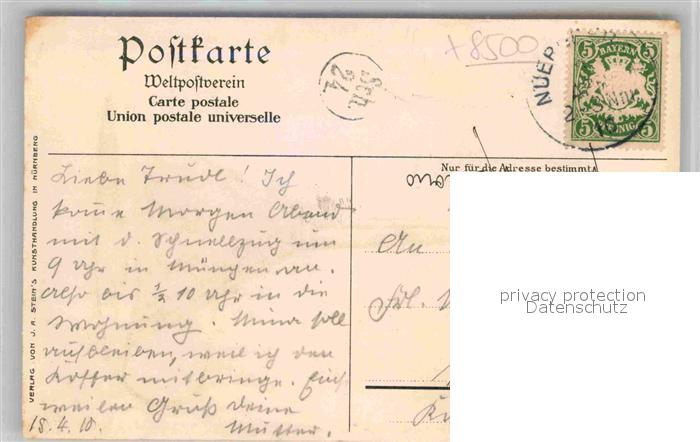 Postkarte
Weltpostverein
Carte postale
Union postale universelle
+8500
24
NUER
5 BAYERN 5
5 PFENNIG 5
Nur für die Adresse bestimmt
VERLAG VON J. A. STEIN'S KUNSTHANDLUNG IN NÜRNBERG
Liebe Trudl! Ich
kome Morgen Abend
mit d. Schnellzug um
9 Uhr in München an.
Also bis ½ 10 Uhr in die
Wohnung. Mina soll
aufbleiben, weil ich den
Koffer mitbringe. Einst
weilen Gruß deine
Mutter.
18.4.10.
An
Frl.
privacy protection
Datenschutz